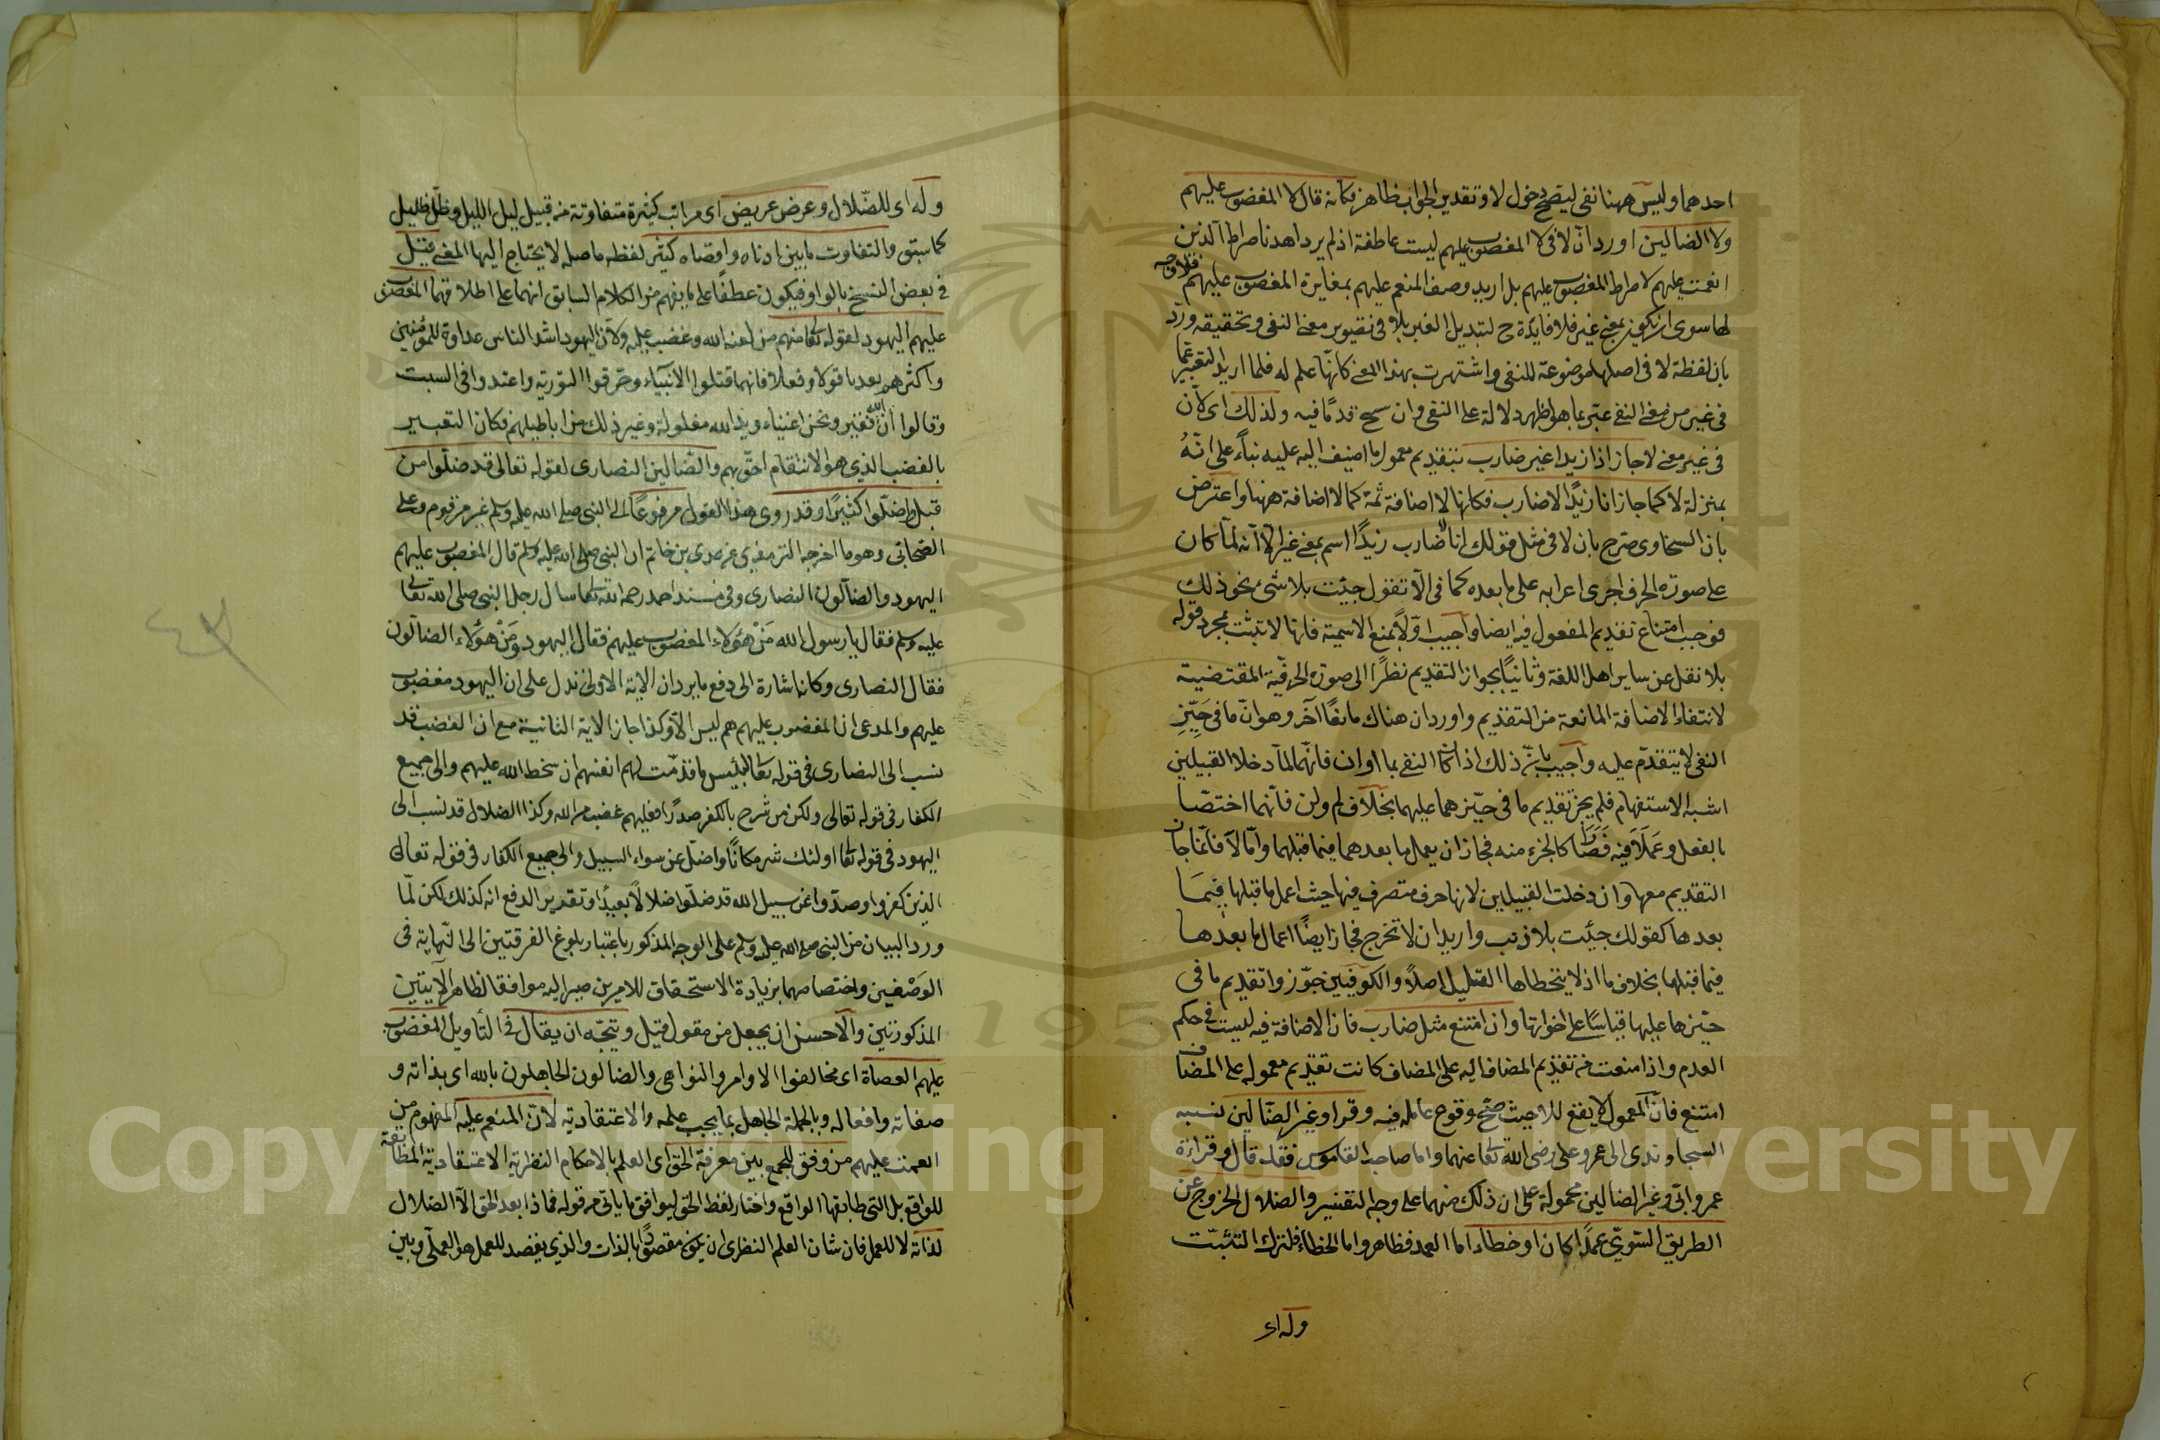 احدهما وليس ههنا نفى ليصح دخول لا وتقدير الجواب ظاهر فكانه قال لا المغضوب عليهم
ولا الضالين اورد ان لا فى لا المغضوب عليهم ليست عاطفة اذ لم يرد اهدنا صراط الذين
انعمت عليهم لا صراط المغضوب عليهم بل اريد وصف المنعم عليهم بمغايرة المغضوب عليهم فلا وجه
لها سوى ان تكون بمعنى غير فلا فايدة ح لتبديل الغير بلا فى تصوير معنى النفى وتحقيقه ورد
بان لفظة لا فى اصلها موضوعة للنفى واشتهرت بهذا المعنى كانها علم له فلما اريد التعبير عما
فى غير من معنى النفى عبر بما هو اظهر دلالة على النفى وان سمح قدما فيه ولذلك اى لان
فى غير معنى لا جاز انا زيدا غير ضارب بتقديم معمول ما اضيف اليه عليه بناء على انه
بمنزلة لا كما جاز انا زيدا لا ضارب فكانها لا اضافة ثمة كما لا اضافة ههنا واعترض
بان السخاوى صرح بان لا فى مثل قولك انا لا ضارب زيدا اسم بمعنى غير الا انه لما كان
على صورة الحرف اجرى اعرابه على ما بعده كما فى الا تقول جيت بلا شئ نحو ذلك
فوجب امتناع تقديم المفعول فيه ايضا واجيب اولا بمنع الاسمية فانها لا تثبت بمجرد قوله
بلا نقل عن ساير اهل اللغة وثانيا بجواز التقديم نظرا الى صورة الحرفية المقتضية
لانتفاء الاضافة المانعة من التقديم واورد ان هناك مانعا آخر وهو ان ما فى حيز
النفى لا يتقدم عليه واجيب بان ذلك اذا كان النفى بما او ان فانهما لما دخلا القبيلين
اشبه الاستفهام فلم يجز تقديم ما فى حيزهما عليهما بخلاف لم ولن فانهما اختصا
بالفعل وعملا فيه فصارا كالجزء منه فجاز ان يعمل ما بعدهما فيما قبلهما واما لا فانما جاز
التقديم معها وان دخلت القبيلين لانها حرف متصرف فيها حيث اعمل ما قبلها فيما
بعدها كقولك جيئت بلا ذنب واريد ان لا تخرج فجاز ايضا اعمال ما بعدها
فيما قبلها بخلاف ما اذ لا يتخطاها العامل اصلا والكوفيين جوزوا تقديم ما فى
حيزها عليها قياسا على اخواتها وان امتنع مثل ضارب فان الاضافة فيه ليست فى حكم
العدم واذا منعت من تقديم المضاف اليه على المضاف كانت تقديم معموله على المضاف
امتنع فان المعمول لا يقع الا حيث صح وقوع عامله فيه وقرا وغير الضالين نسبه
السجاوندى الى عمر وعلى رضى الله تعالى عنهما واما صاحب القاموس فقد قال وقراءة
عمر وابى وغير الضالين محمولة على ان ذلك منهما على وجه التفسير والضلال الخروج عن
الطريق السوى عمدا كان او خطاء اما العمد فظاهر واما الخطاء فلترك التثبت
وله اى
وله اى للضلال وعرض عريض اى مراتب كثيرة متفاوتة من قبيل ليل الليل وظل ظليل
كما سبق والتفاوت ما بين ادناه واقصاه كثير لفظه ما صله لا يحتاج اليها المعنى قيل
فى بعض النسخ بالواو فيكون عطفا على ما يفهم من الكلام السابق انهما على اطلاقهما المغضوب
عليهم اليهود لقوله تعالى منهم من لعنه الله وغضب عليه ولان اليهود اشد الناس عداوة للمؤمنين
واكثرهم بعدا قولا وفعلا فانهم قتلوا الانبياء وحرقوا التورية واعتدوا فى السبت
وقالوا ان الله فقير ونحن اغنياء ويد الله مغلولة وغير ذلك من اباطيلهم فكان التعبير
بالغضب الذى هو الانتقام احق بهم والضالين النصارى لقوله تعالى قد ضلوا من
قبل واضلوا كثيرا وقد روى هذا القول مرفوعا الى النبى صلى الله عليه وسلم غير مرقوم وعلى
الصحابى وهو ما اخرجه الترمذى عن عدى بن خاتم ان النبى صلى الله عليه وسلم قال المغضوب عليهم
اليهود والضآلون النصارى وفى مسند احمد رحمه الله تعالى سال رجل النبى صلى الله تعالى
عليه وسلم فقال يا رسول الله من هؤلاء المغضوب عليهم فقال اليهود ومن هؤلاء الضآلون
فقال النصارى وكانه اشارة الى دفع ما يرد ان الاية الاولى تدل على ان اليهود مغضوب
عليهم والمدعى ان المغضوب عليهم هم ليس الا وكذا جاز الاية الثانية مع ان الغضب قد
نسب الى النصارى فى قوله تعالى لبئس ما قدمت لهم انفسهم ان سخط الله عليهم والى جميع
الكفار فى قوله تعالى ولكن من شرح بالكفر صدرا فعليهم غضب من الله وكذا الضلال قد نسب الى
اليهود فى قوله تعالى اولئك شر مكانا واضل عن سواء السبيل والى جميع الكفار فى قوله تعالى
الذين كفروا وصدوا عن سبيل الله قد ضلوا ضلالا بعيدا وتقدير الدفع انه كذلك لكن لما
ورد البيان من النبى صلى الله عليه وسلم على الوجه المذكور باعتبار بلوغ الفرقتين الى النهاية فى
الوصفين واختصاصهما بزيادة الاستحقاق للامرين صير اليه موافقا لظاهر الآيتين
المذكورتين والاحسن ان يجعل من مقول قيل ويتجه ان يقال فى التأويل المغضوب
عليهم العصاة اى مخالفوا الاوامر والنواهى والضالون الجاهلون بالله اى بذاته و
صفاته وافعاله وبالجملة الجاهل بما يجب علمه والاعتقاد به لان المنعم عليه المفهوم من
انعمت عليهم من وفق للجمع بين معرفة الحق اى العلم بالاحكام النظرية الاعتقادية المطابقة
للواقع بل التى طابقها الواقع واختار لفظ الحق ليوافق ما ياتى من قوله فماذا بعد الحق الا الضلال
لذاته لا للعمل فان شان العلم النظرى ان يكون مقصودا بالذات والذى يقصد للعمل هو العملى وبين
٤٣
Copyright © King Saud University
195